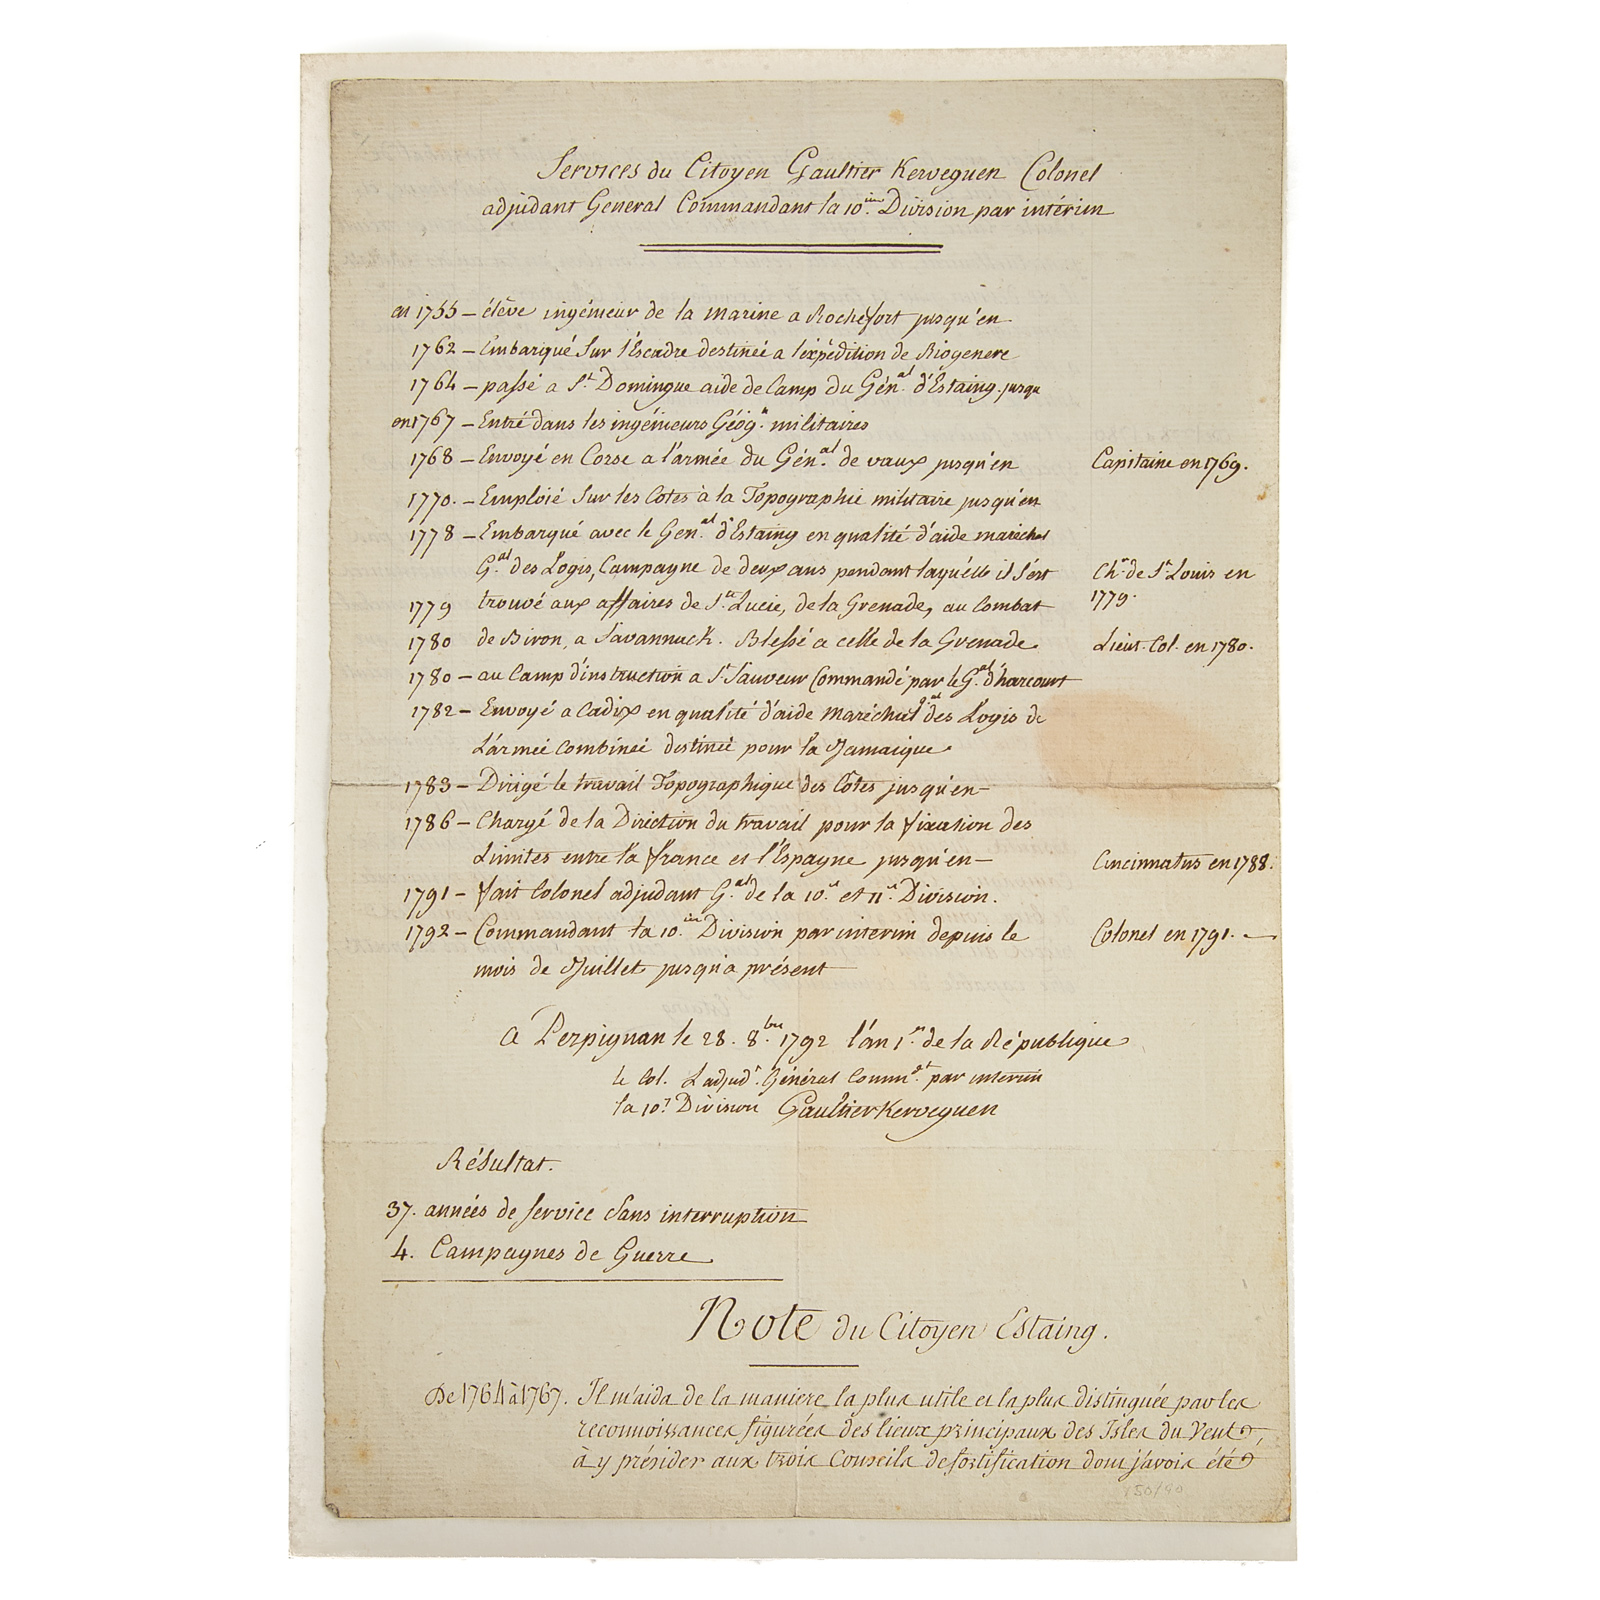 Services du Citoyen Gaultier Kerveguen Colonel
adjudant General Commandant la 10.ieme Division par intérim
en 1755 – éléve ingénieur de la marine a Rochefort jusqu'en
1762 – Embarqué Sur l'Escadre destinée a l'éxpédition de Riogenere
1764 – passé a St. Domingue aide de Camp du Génal. d'Estaing jusqu
en 1767 – Entré dans les ingénieurs Géog.s militaires
1768 – Envoyé en Corse a l'armée du Génal. de vaux jusqu'en
Capitaine en 1769.
1770. – Emploié Sur les Cotes à la Topographie militaire jusqu'en
1778 – Embarqué avec le Genal. d'Estaing en qualité d'aide maréchal
Gal. des Logis, Campagne de deux ans pendant laquélle il S'est
Chr. de St. Louis en
1779.
1779 trouvé aux affaires de Ste. Lucie, de la Grenade, au Combat
1780 de Biron, a Savannack. Blessé a celle de la Grenade
Lieut. Col. en 1780.
1780 – au Camp d'instruction a St. Sauveur Commandé par le Gal. d'harcourt
1782 – Envoyé a Cadix en qualité d'aide Maréchal gal. des Logis de
L'armée Combinée destinée pour la Jamaique
1783 – Dirigé le travail Topographique des Côtes jusqu'en –
1786 – Chargé de la Diréction du travail pour la fixation des
Limites entre la france et l'Espagne jusqu'en –
Cincinnatus en 1788.
1791 – fait Colonel adjudant Gal. de la 10.e et 11.e Division.
1792 – Commandant la 10.ieme Division par interim depuis le
Colonel en 1791. –
mois de Juillet jusqu'a présent
a Perpignan le 28. 8.bre 1792 l'an 1.er de la République
le Col. L'adjudt. Général Commdt. par interim
la 10.e Division GaultierKerveguen
Résultat.
37. années de service Sans interruption
4. Campagnes de Guerre
Note du Citoyen Estaing.
De 1764 à 1767. Il m'aida de la maniere la plus utile et la plus distinguée par les
reconnoissances figurées des lieux principaux des Isles du Vent,
à y présider aux trois Conseils de fortification dont j'avois été